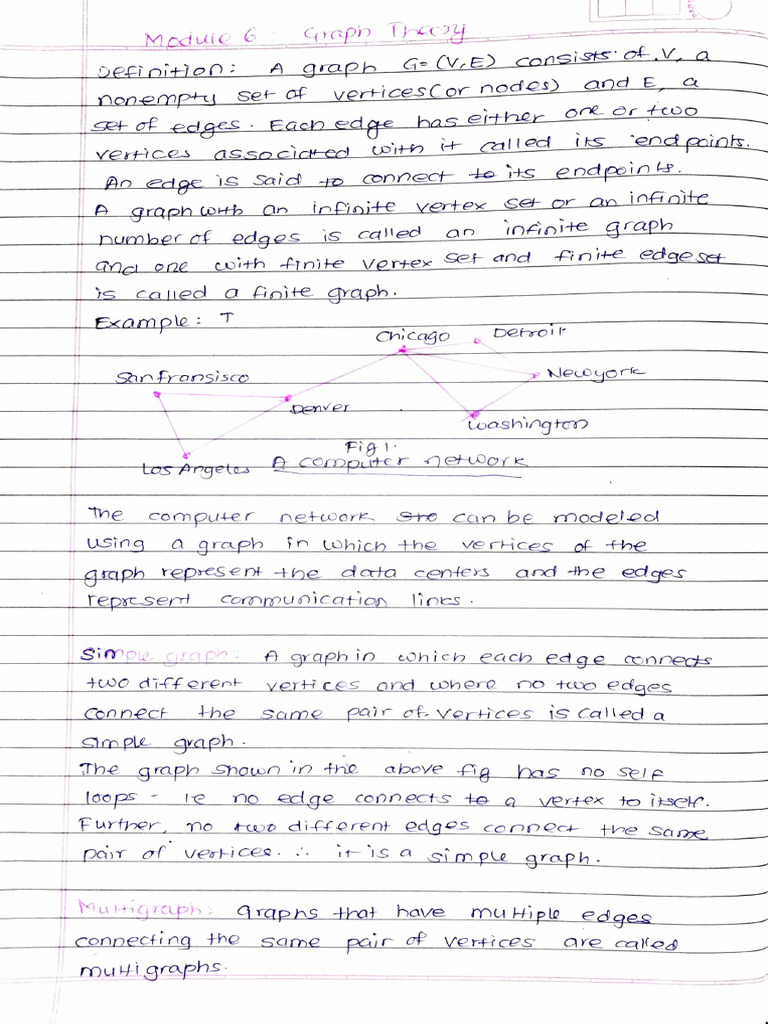 Module 6: Graph Theory
Definition: A graph G=(V,E) consists of V, a
nonempty set of vertices(or nodes) and E, a
set of edges. Each edge has either one or two
vertices associated with it called its endpoints.
An edge is said to connect to its endpoints.
A graph with an infinite vertex set or an infinite
number of edges is called an infinite graph
and one with finite vertex set and finite edge set
is called a finite graph.
Example: T
Chicago Detroit
San Fransisco Newyork
Denver
Washington
Fig 1.
Los Angeles A computer network
The computer network sto can be modeled
using a graph in which the vertices of the
graph represent the data centers and the edges
represent communication links.
Simple graph: A graph in which each edge connects
two different vertices and where no two edges
connect the same pair of vertices is called a
simple graph.
The graph shown in the above fig has no self
loops - ie no edge connects to a vertex to itself.
Further, no two different edges connect the same
pair of vertices. ∴ it is a simple graph.
Multigraph: Graphs that have multiple edges
connecting the same pair of vertices are called
multigraphs.